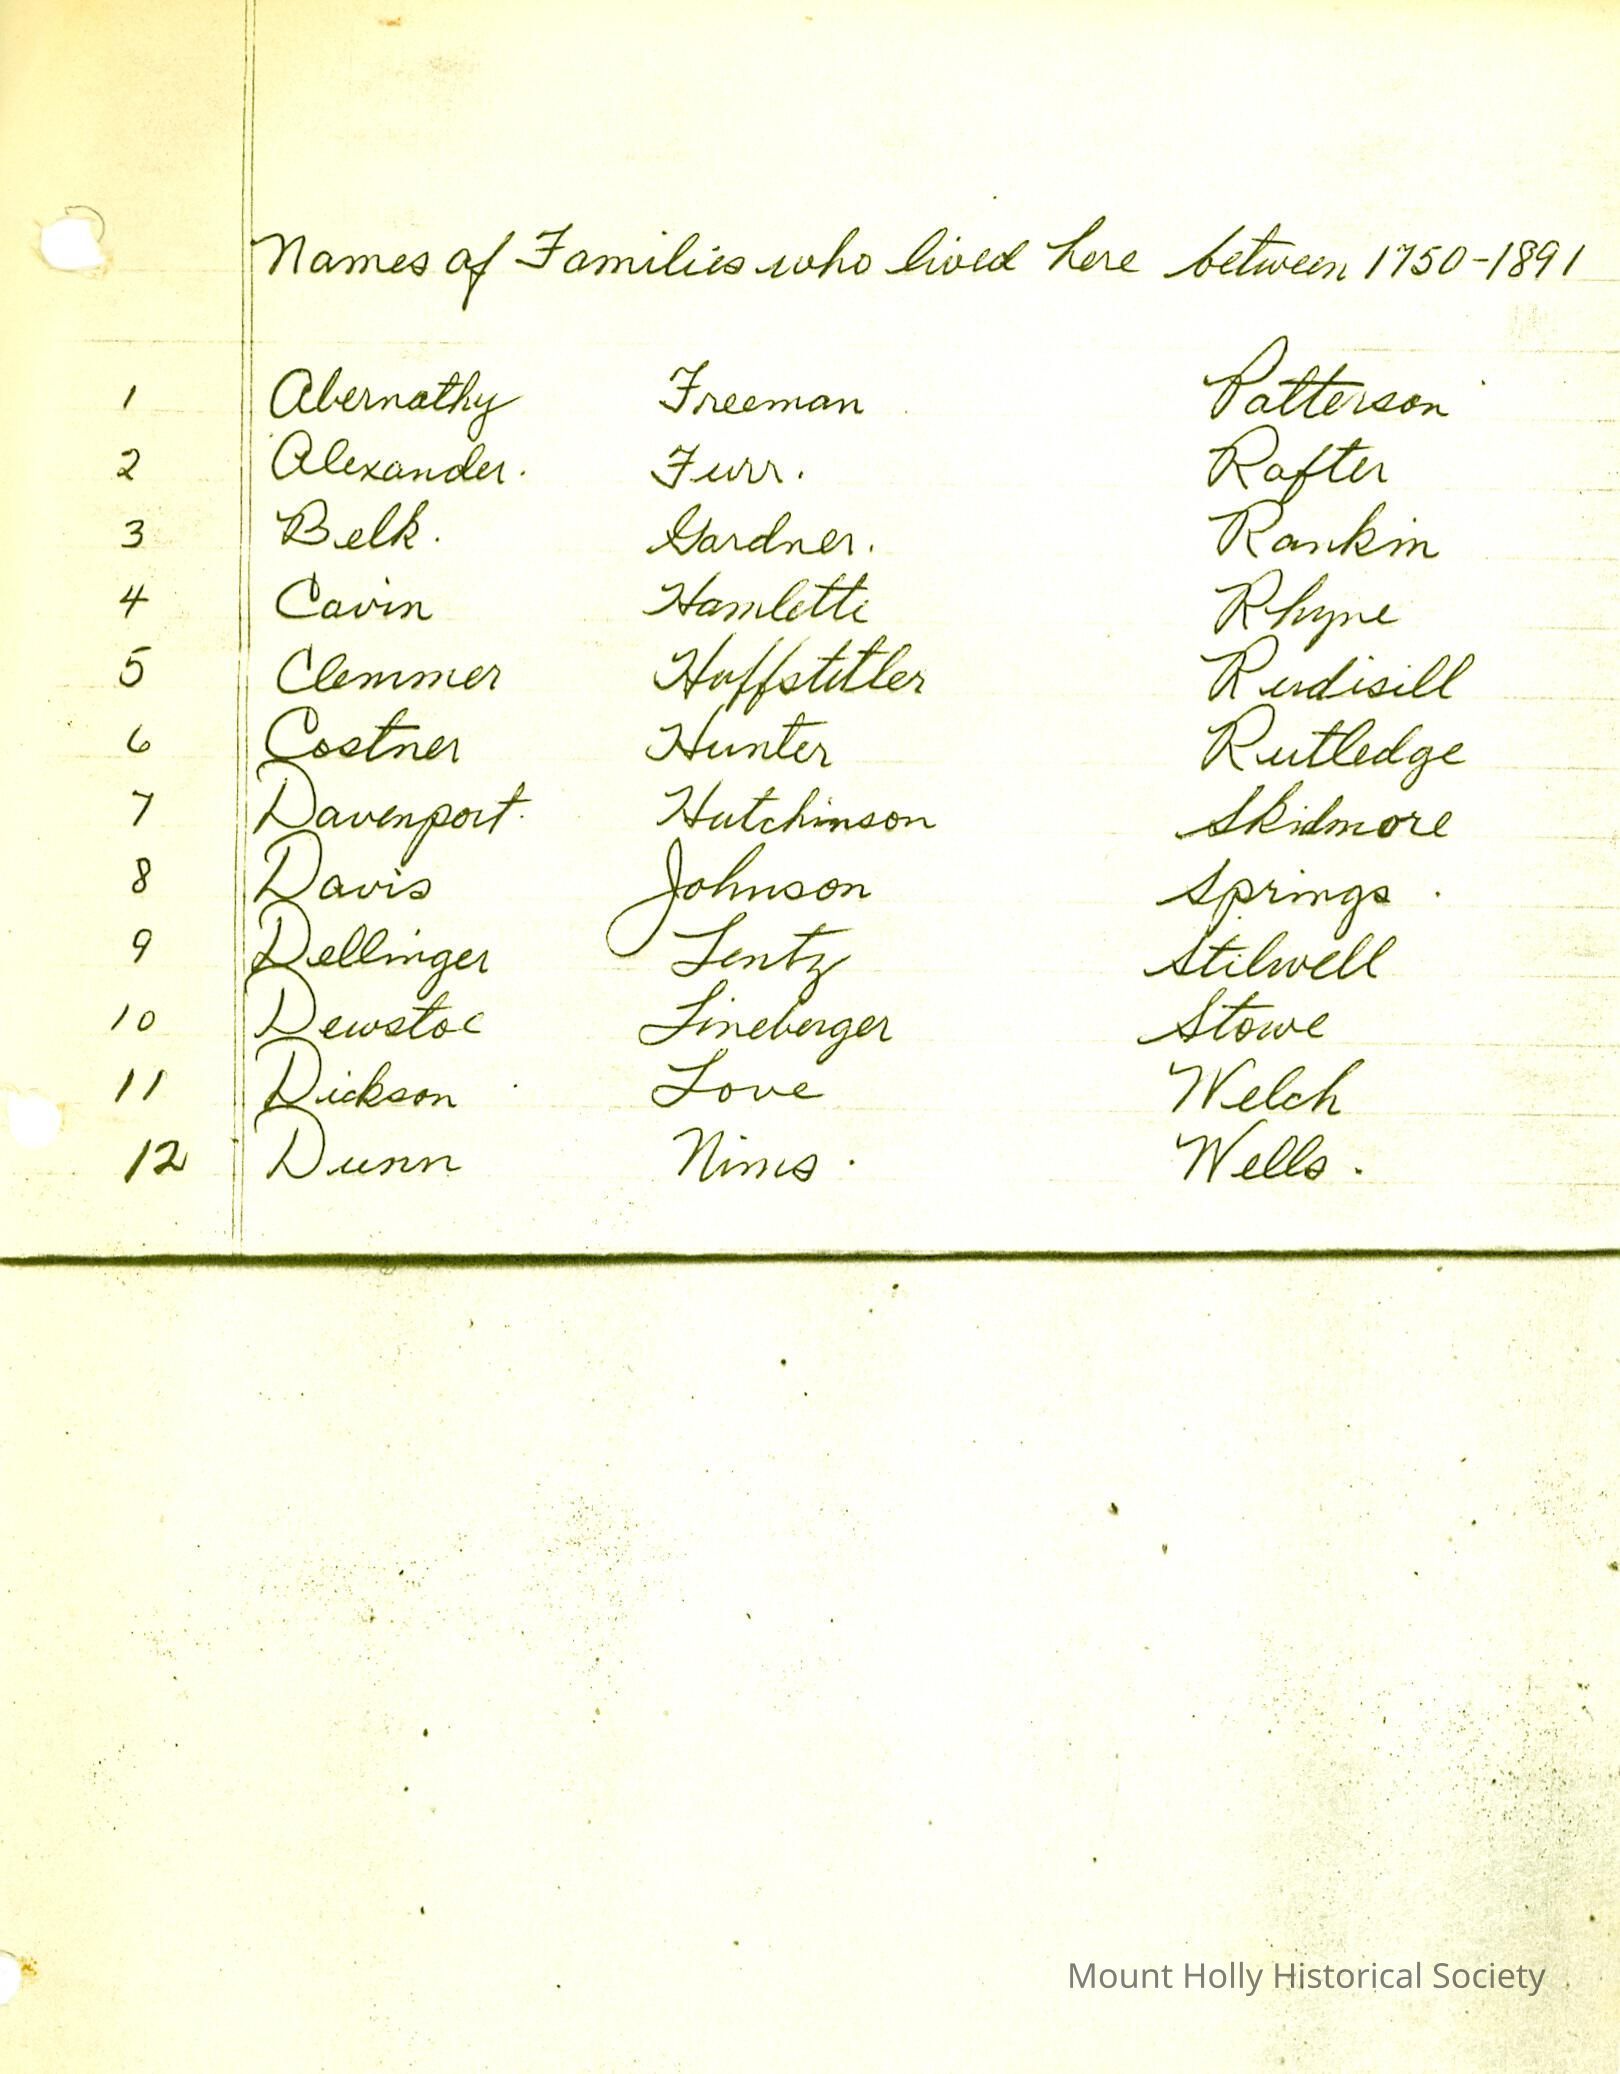 Names of Families who lived here between 1750-1891
1 Abernathy Freeman Patterson
2 Alexander. Furr. Rafter
3 Belk. Gardner. Rankin
4 Cavin Hamlette Rhyne
5 Clemmer Huffstetler Rudisill
6 Costner Hunter Rutledge
7 Davenport. Hutchinson Skidmore
8 Davis Johnson Springs.
9 Dellinger Lentz Stilwell
10 Dewstoe Lineberger Stowe
11 Dickson Love Welch
12 Dunn Nims. Wells.
Mount Holly Historical Society